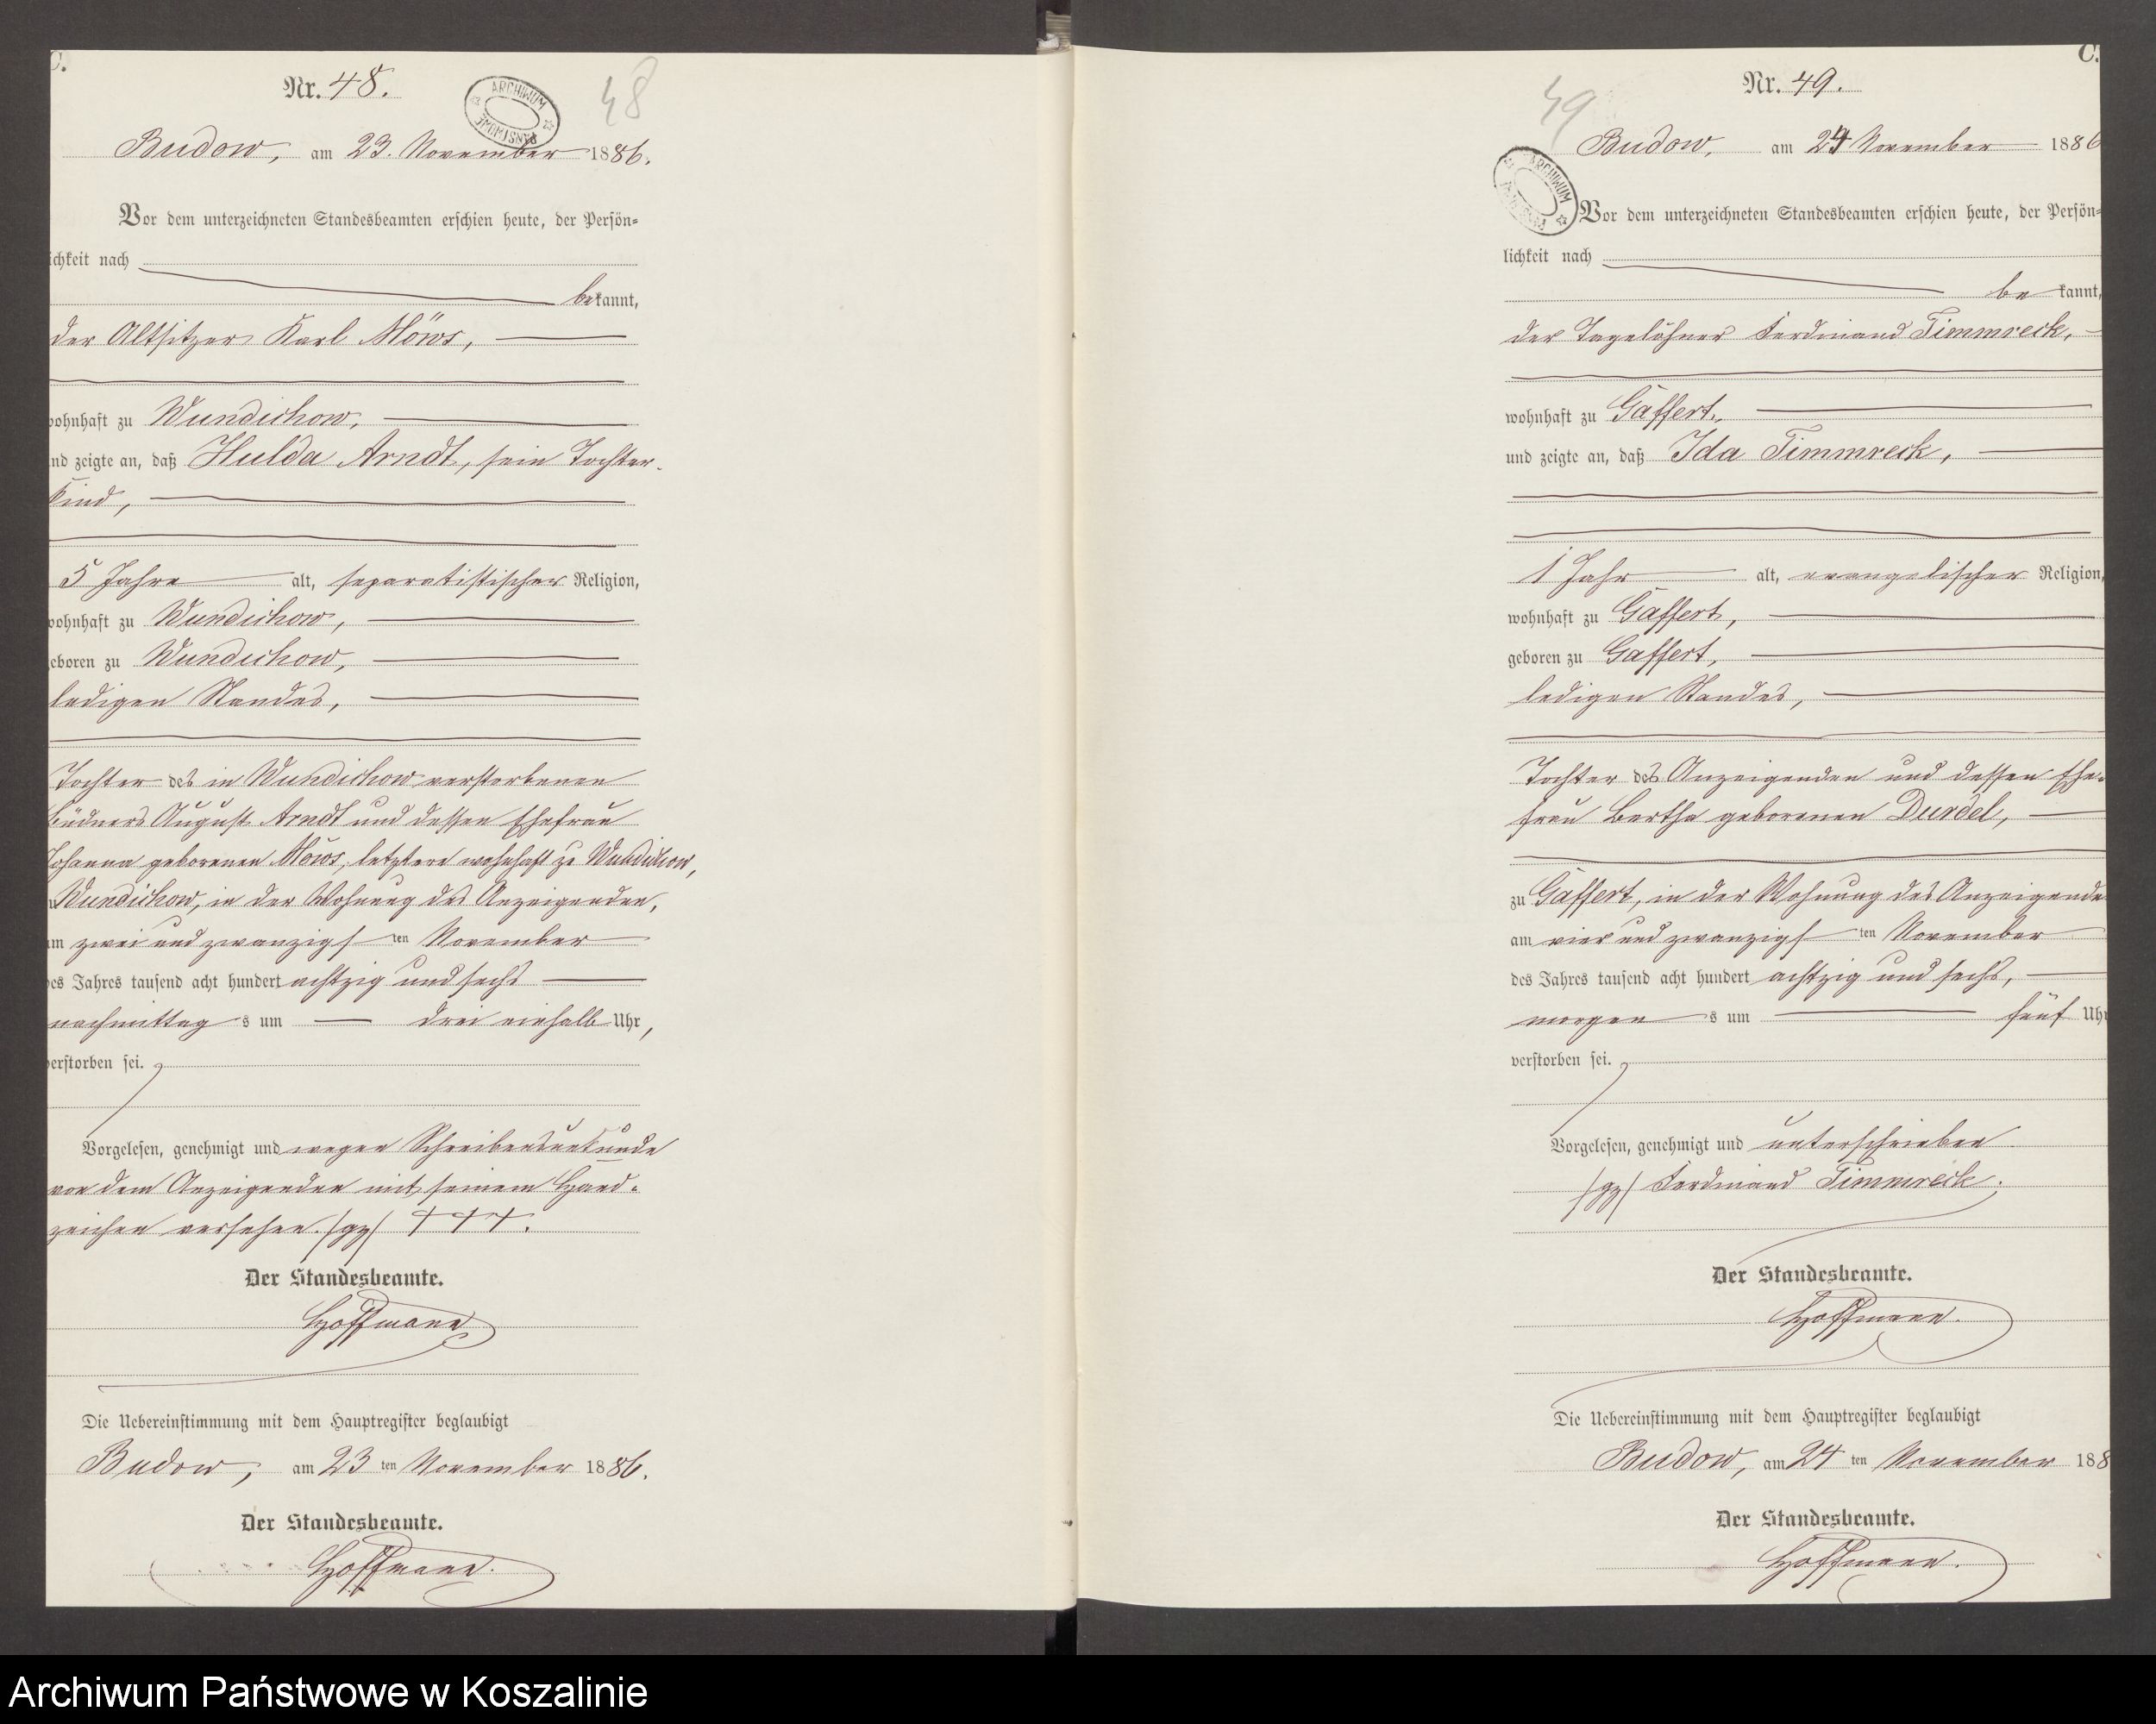 C.
Nr. 48.
ARCHIWUM PAŃSTWOWE
48
Budow, am 23. November 1886.
Vor dem unterzeichneten Standesbeamten erschien heute, der Persön-
ichkeit nach
bekannt,
der Altsitzer Karl Möws,
wohnhaft zu Wundichow,
nd zeigte an, daß Hulda Arndt, sein Tochter-
kind,
5 Jahre alt, separatistischer Religion,
wohnhaft zu Wundichow,
eboren zu Wundichow,
ledigen Standes,
Tochter des in Wundichow verstorbenen
Büdners August Arndt und dessen Ehefrau
Johanna geborenen Möws, letztere wohnhaft zu Wundichow,
zu Wundichow, in der Wohnung des Anzeigenden,
am zwei und zwanzigsten November
des Jahres tausend acht hundert achtzig und sechs
nachmittags um drei einhalb Uhr,
verstorben sei.
Vorgelesen, genehmigt und wegen Schreibensunkunde
von dem Anzeigenden mit seinem Hand-
zeichen versehen. /gz/ +++.
Der Standesbeamte.
Hoffmann
Die Uebereinstimmung mit dem Hauptregister beglaubigt
Budow, am 23 ten November 1886.
Der Standesbeamte.
Hoffmann.
C.
Nr. 49.
49
Budow, am 24 November 1886
ARCHIWUM
Vor dem unterzeichneten Standesbeamten erschien heute, der Persön-
lichkeit nach
bekannt,
der Tagelöhner Ferdinand Timmreck,
wohnhaft zu Gaffert,
und zeigte an, daß Ida Timmreck,
1 Jahr alt, evangelischer Religion,
wohnhaft zu Gaffert,
geboren zu Gaffert,
ledigen Standes,
Tochter des Anzeigenden und dessen Ehe-
frau Bertha geborenen Durdel,
zu Gaffert, in der Wohnung des Anzeigende
am vier und zwanzigsten November
des Jahres tausend acht hundert achtzig und sechs,
morgens um fünf Uhr
verstorben sei.
Vorgelesen, genehmigt und unterschrieben
/gz/ Ferdinand Timmreck.
Der Standesbeamte.
Hoffmann.
Die Uebereinstimmung mit dem Hauptregister beglaubigt
Budow, am 24 ten November 188
Der Standesbeamte.
Hoffmann.
Archiwum Państwowe w Koszalinie